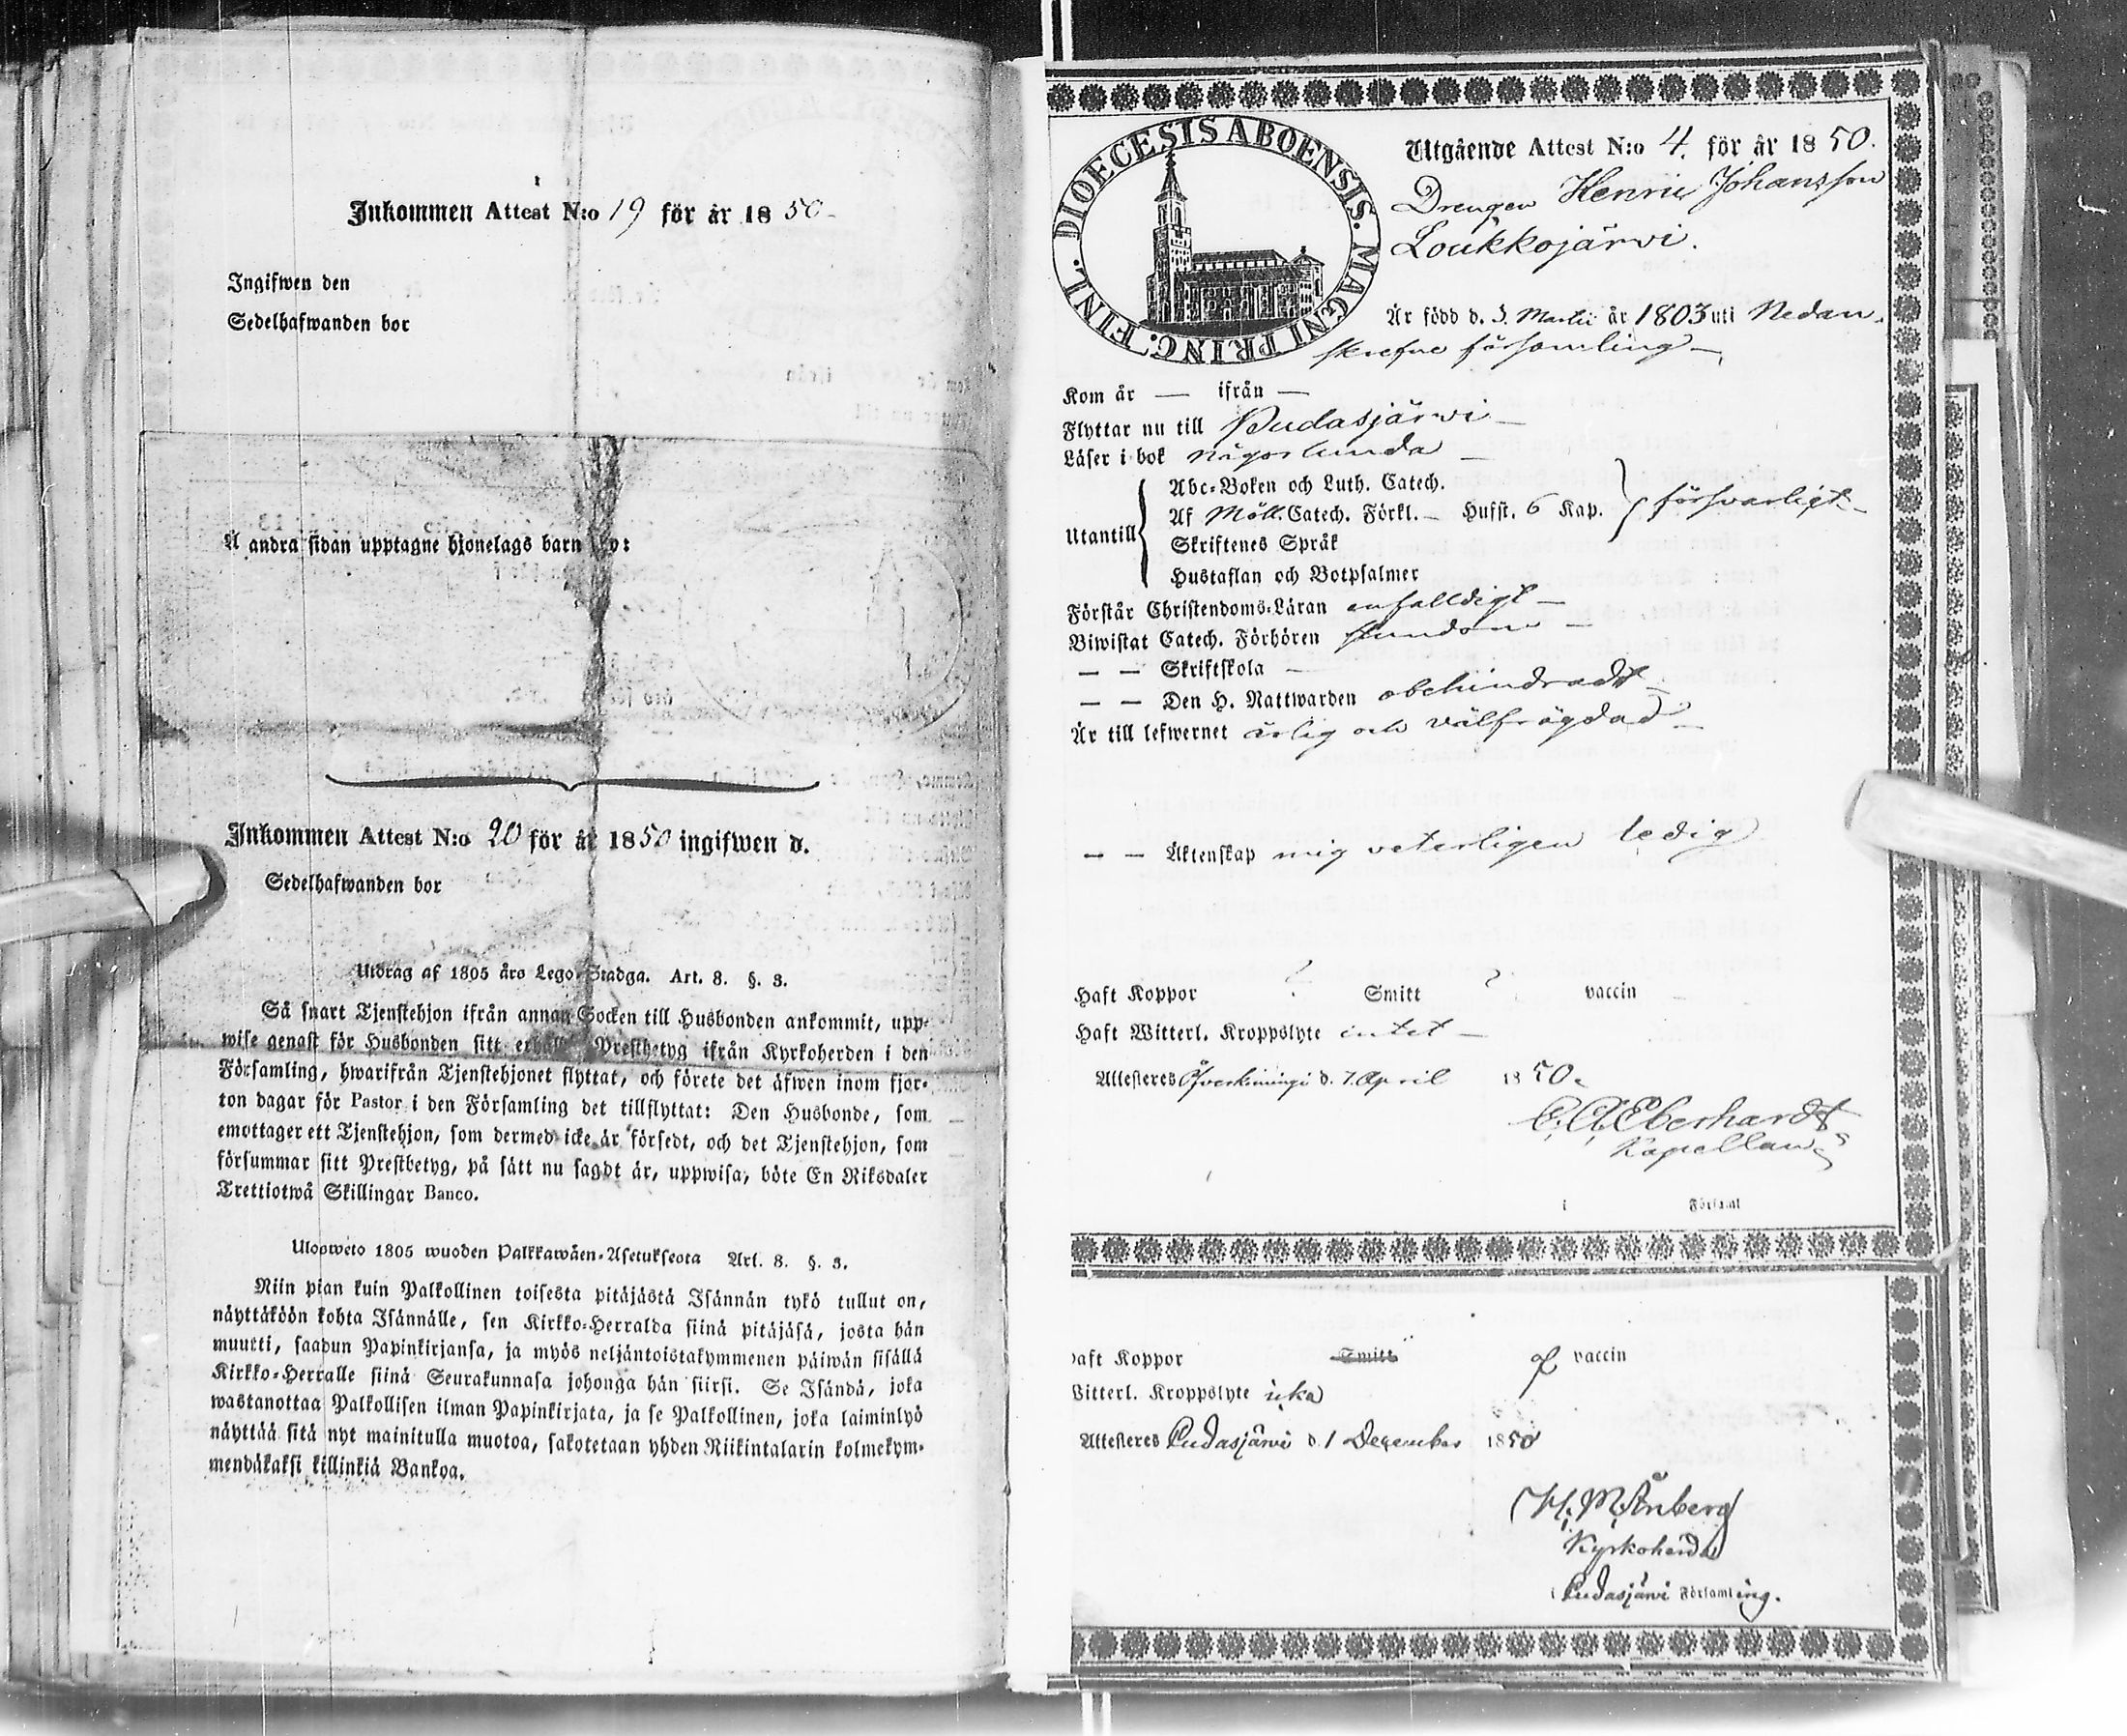 Inkommen Attest N:o 19 för år 1850
Ingifwen den
Sedelhafwanden bor
Å andra sidan upptagne hjonelags barn
Inkommen Attest N:o 20 för år 1850 ingifwen d.
Sedelhafwanden bor
Utdrag af 1805 års Lego-Stadga. Art. 8. §. 3.
Så snart Tjenstehjon ifrån annan Socken till Husbonden ankommit, upp-
wise genast för Husbonden sitt Prestbetyg ifrån Kyrkoherden i den
Församling, hwarifrån Tjenstehjonet flyttat, och förete det äfwen inom fjor-
ton dagar för Pastor i den Församling det tillflyttat: Den Husbonde, som
emottager ett Tjenstehjon, som dermed icke är försedt, och det Tjenstehjon, som
försummar sitt Prestbetyg, på sätt nu sagdt är, uppwisa, böte En Riksdaler
Trettiotwå Skillingar Banco.
Ulosweto 1805 wuoden Palkkawäen-Asetuksesta Art. 8. §. 3.
Niin pian kuin Palkollinen toisesta pitäjästä Isännän tykö tullut on,
näyttäköön kohta Isännälle, sen Kirkko-Herralda siinä pitäjäsä, josta hän
muutti, saadun Papinkirjansa, ja myös neljäntoistakymmenen päiwän sisällä
Kirkko-Herralle siinä Seurakunnasa johonga hän siirsi. Se Isändä, joka
wastanottaa Palkollisen ilman Papinkirjata, ja se Palkollinen, joka laiminlyö
näyttää sitä nyt mainitulla muotoa, sakotetaan yhden Riikintalarin kolmekym-
mendäkaksi killinkiä Bankoa.
DIOECESIS ABOENSIS. MAGNI PRINC. FINL.
Utgående Attest N:o 4. för år 1850.
Drengen Henric Johansson
Loukkojärvi.
Är född d. 3. Martii år 1803 uti Nedan-
skrefne församling
Kom år — ifrån —
Flyttar nu till Pudasjärvi
Läser i bok någorlunda
Utantill
Abc-Boken och Luth. Catech.
Af Möll. Catech. Förkl. — Husst. 6 Kap. försvarligt
Skriftenes Språk
Hustaflan och Botpsalmer
Förstår Christendoms-Läran enfalldigt
Biwistat Catech. Förhören stundom
— — Skriftskola —
— — Den H. Nattwarden obehindradt
Är till lefwernet ärlig och välfrägdad
— — Äktenskap mig veterligen ledig
Haft Koppor ? Smitt ? vaccin
Haft Witterl. Kroppslyte intet
Attesteres Öfverkiimingi d. 7. April 1850.
C. A. Eberhardt
Kapellan
i Församl
Haft Koppor Smitt af vaccin
Witterl. Kroppslyte icke
Attesteres Pudasjärvi d. 1 December 1850
H. M. Ånberg
Kyrkoherde
i Pudasjärvi Församling.